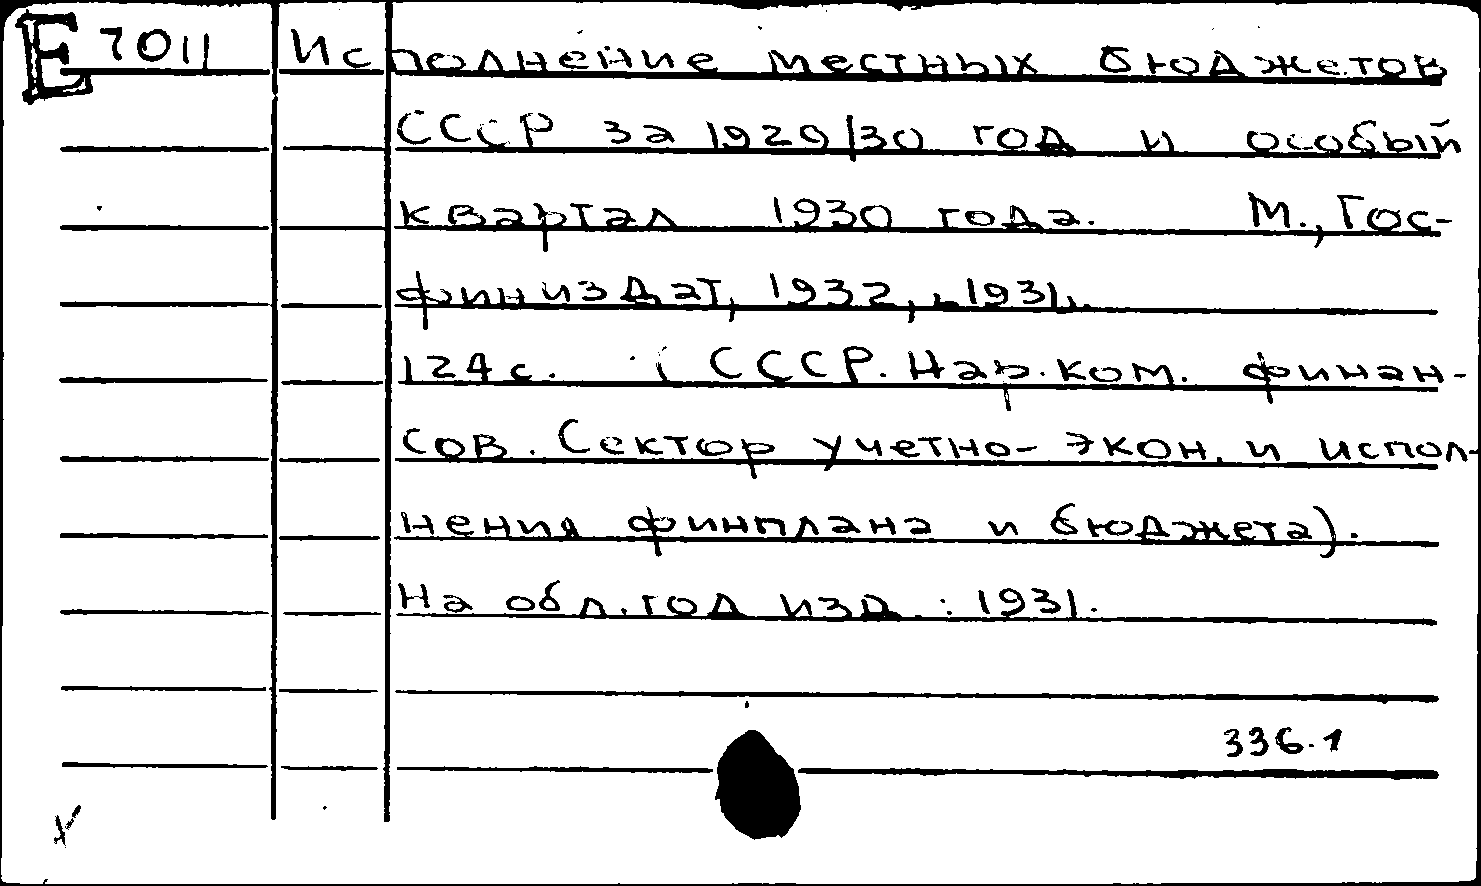 E 7011 Исполнение местных бюджетов
СССР за 1929/30 год и особый
квартал 1930 года. М., Гос-
финиздат, 1932, 1931.
124 с. (СССР. Нар. ком. финан-
сов. Сектор учетно-экон. и испол-
нения финплана и бюджета).
На обл. год изд.: 1931.
336.1